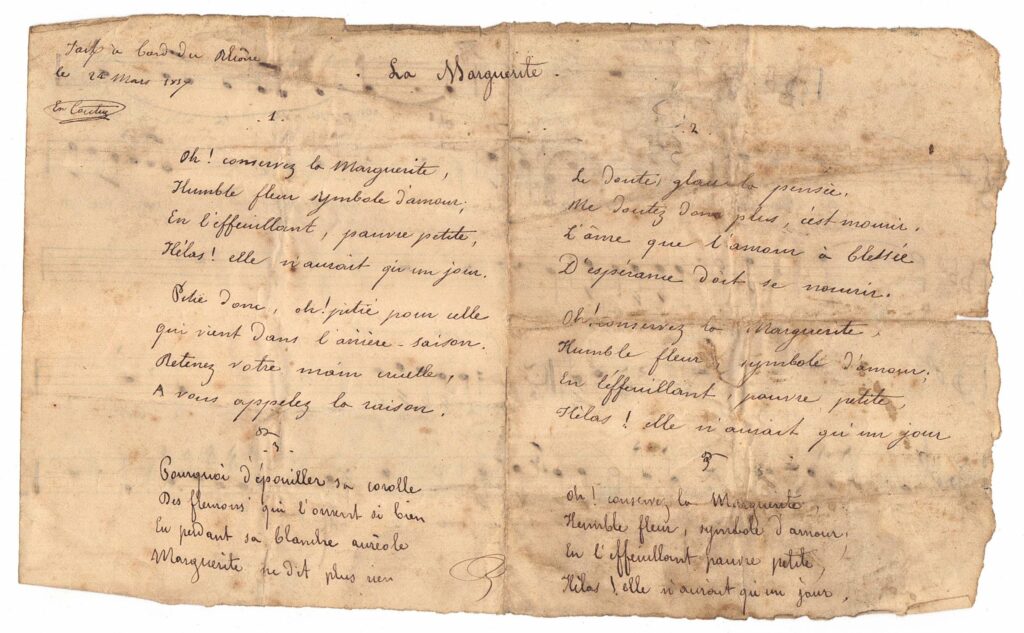 Fait à bord du Rhône
le 24 Mars
La Marguerite.
1
Oh! conservez la Marguerite,
Humble fleur symbole d'amour;
En l'effeuillant, pauvre petite,
Hélas! elle n'aurait qu'un jour.
Pitié donc, oh! pitié pour celle
qui vient dans l'arrière-saison.
Retenez votre main cruelle,
A vous appelez la raison.
2
Le doute, glace la pensée.
Ne doutez donc plus, c'est mourir.
L'âme que l'amour à blessée
D'espérance doit se nourrir.
Oh! conservez la Marguerite,
Humble fleur, symbole d'amour;
En l'effeuillant, pauvre petite,
Hélas! elle n'aurait qu'un jour
3
Pourquoi d'épouiller sa corolle
Des fleurons qui l'ornent si bien
En perdant sa blanche auréole
Marguerite ne dit plus rien
Oh! conservez la Marguerite,
Humble fleur, symbole d'amour;
En l'effeuillant pauvre petite,
Hélas! elle n'aurait qu'un jour.